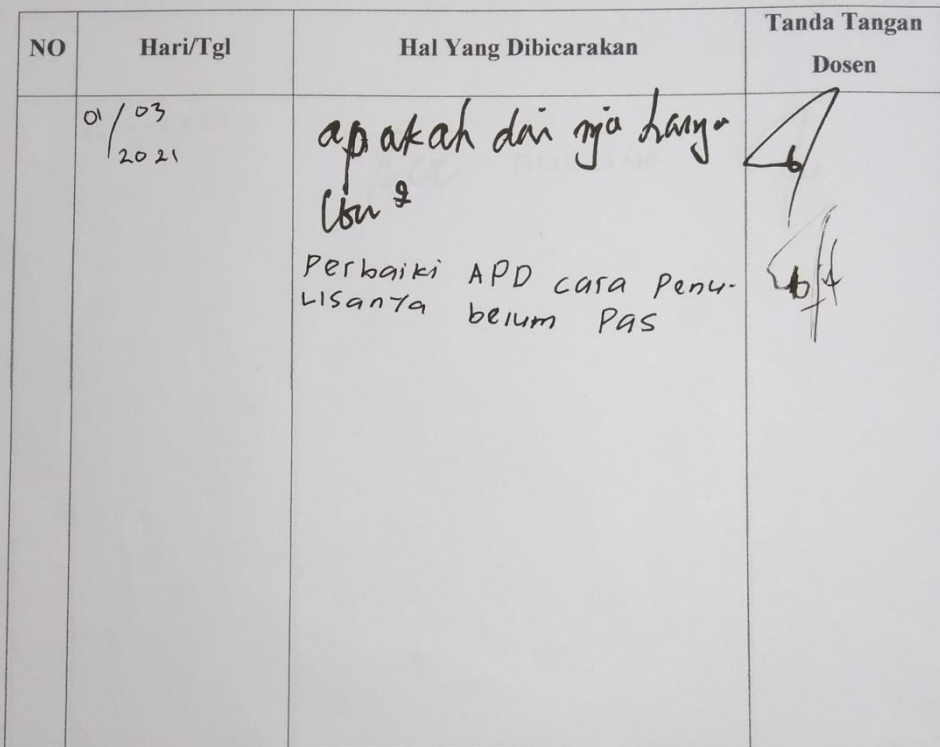 NO Hari/Tgl Hal Yang Dibicarakan Tanda Tangan
Dosen
01/03
2021
apakah dari nya hanya
Perbaiki APD cara Penu-
Lisanya belum Pas